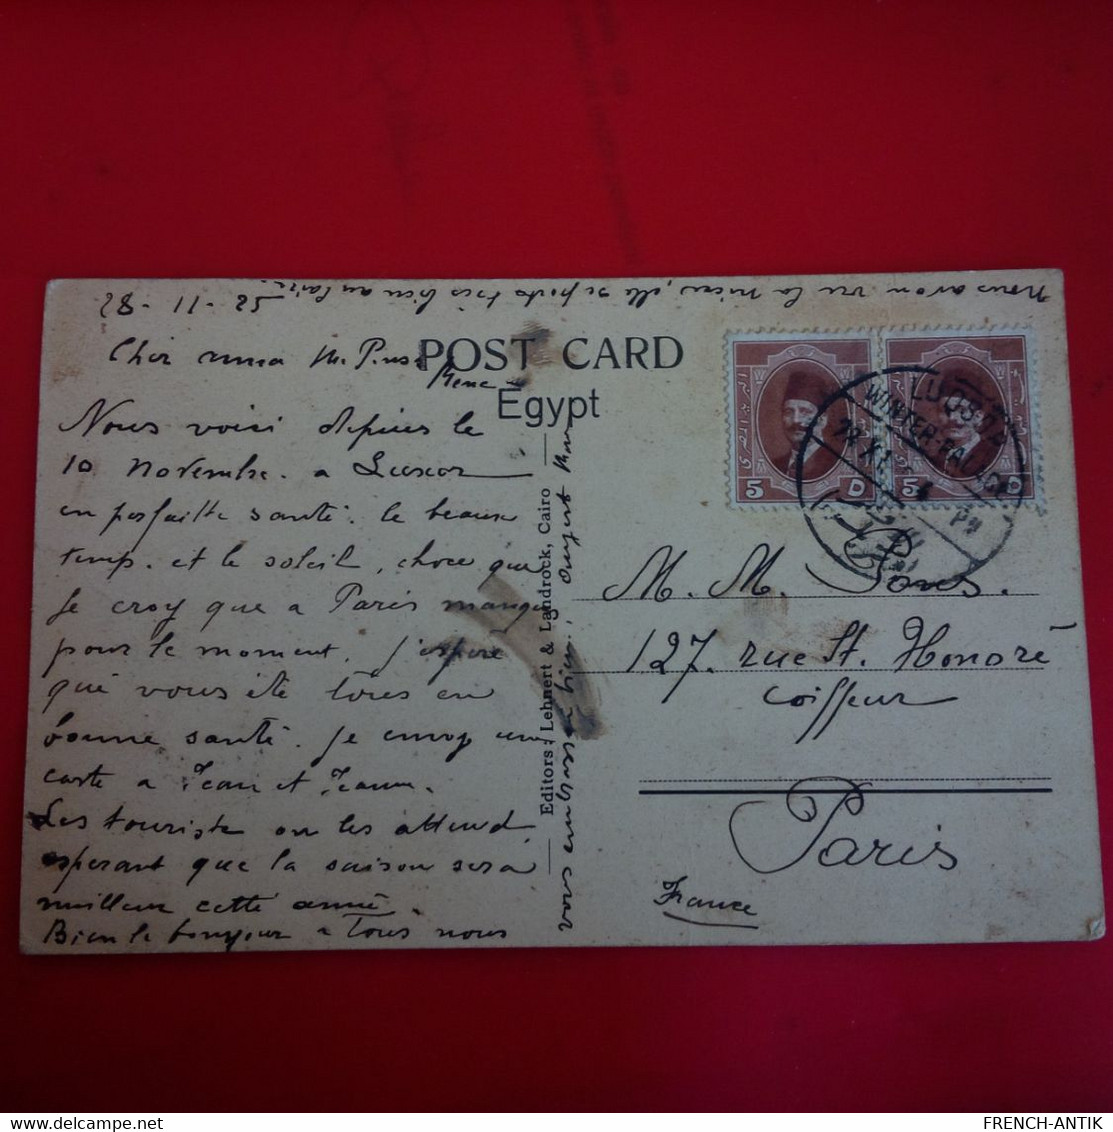 Nous avon vu la mère, elle se porte très bien au Caire
28-11-25
Cher amis M. Pons
POST CARD
Egypt
Nous voici depuis le
10 novembre a Luxor
en parfaite santé. le beaux
temp. et le soleil, chose que
Je croy que a Paris manque
pour le moment, J'espère
que vous ete tous en
bonne santé. Je envoy une
carte a Jean et Jeanne.
Les touriste on les attend
esperant que la saison sera
meilleur cette année.
Bien le bonjour a Tous nous
vous embrassa bien.
Editors: Lehnert & Landrock, Cairo
5 D
5 D
LUQSOR
WINTER-PALACE
28 XI
PM
M. M. Pons.
127. rue St. Honoré
coiffeur
Paris
France
FRENCH-ANTIK